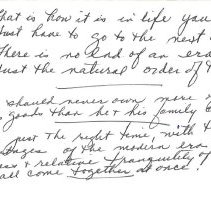 That is how it is in life you
just have to go to the next
There is no end of an era
Just the natural order of
should never own more
goods than he & his family
past the right time, with
of the modern era
& relative tranquility of
all come together at once.